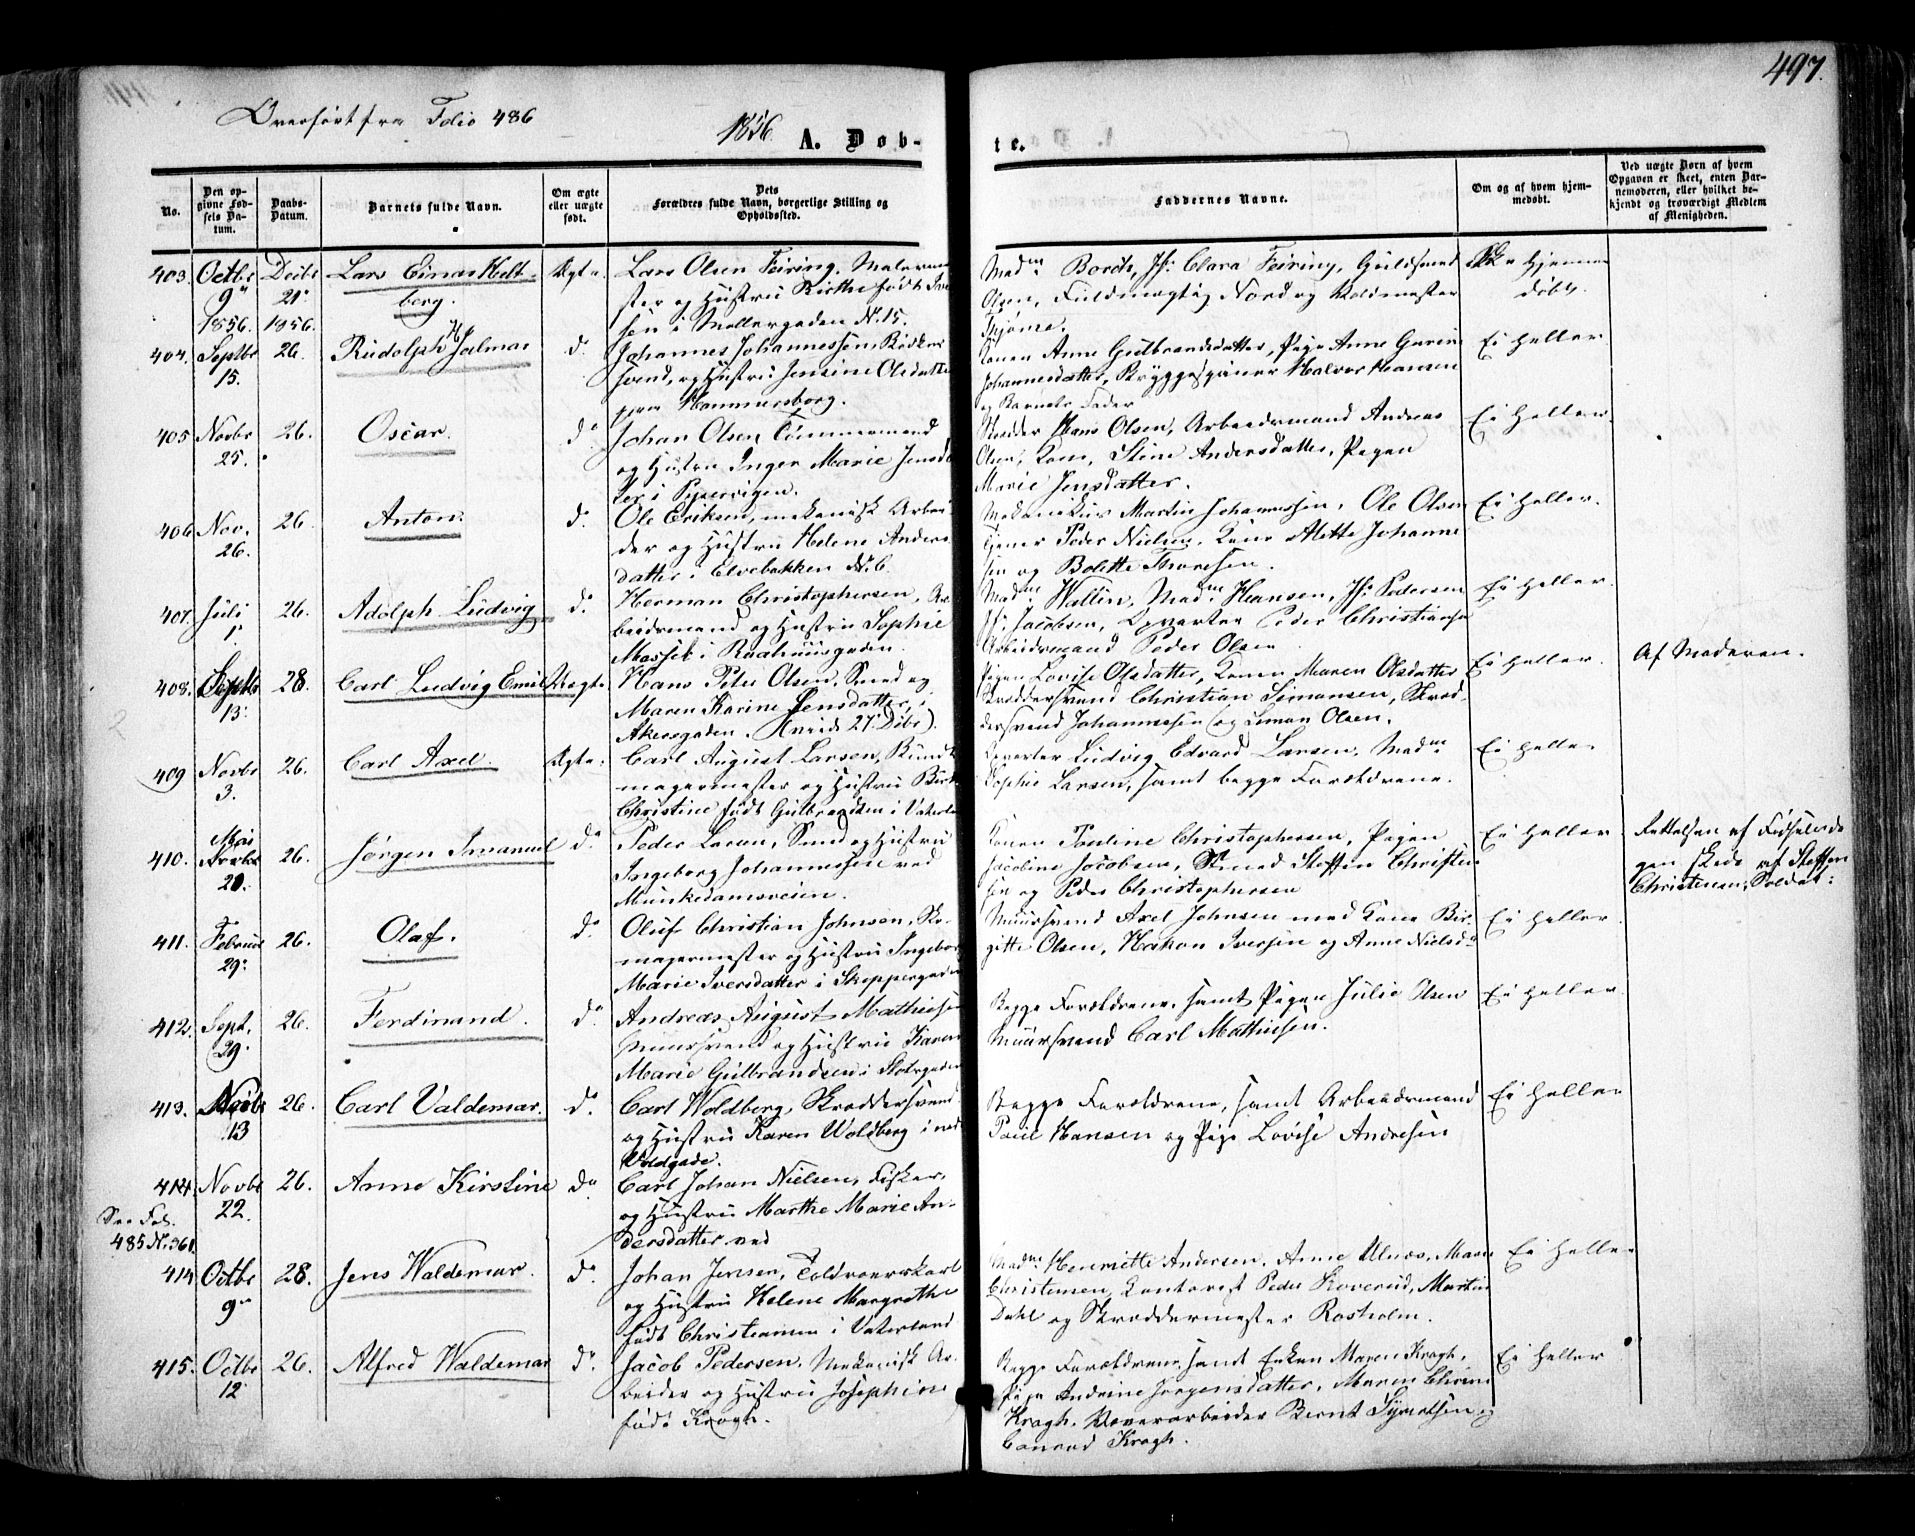 497.
Overført fra Folio 486
1856.
A. Døb-
te.
No.
Den opgivne Fødsels Datum.
Daabs-Datum.
Barnets fulde Navn.
Om ægte eller uægte født.
Dets Forældres fulde Navn, borgerlige Stilling og Opholdssted.
Faddernes Navne.
Om og af hvem hjemmedøbt.
Ved uægte Børn af hvem Opgaven er skeet, enten Barnemoderen, eller hvilket bekjendt og troværdigt Medlem af Menigheden.
403. Octbr 9 1856. Decbr 21 1856. Lars Einar Heltberg. Ægte.
Lars Olsen Feiring, Malerme
ster og Hustru Birthe født Iver
sen i Møllergaden No. 15.
Madm Borch, Jfr Clara Feiring, Guldsmed
Olsen, Fuldmægtig Nord og Voldmester
Thjøme.
Ikke hjemmedøbt.
404. Septbr 15. 26. Rudolph Hjalmar do
Johannes Johannessen
svend, og Hustru Jensine Olsdatter
paa Hammersborg.
Konen Anne Gulbrandsdatter, Pige Anne
Johannesdatter, Bryggesjouer Halvor Hansen
og Barnets Fader
Ei heller
405 Novbr 25. 26. Oscar. do
Johan Olsen Tømmermand
og Hustru Inger Marie Jensdat
ter i Pipervigen.
Skrædder Hans Olsen, Arbeidsmand Andreas
Olsen, Kone, Stine Andersdatter, Pigen
Marie Jensdatter.
Ei heller.
406 Nov. 26. 26. Anton. do
Ole Eriksen, mekanisk Arbei
der og Hustru Helene Anders
datter i Elvebakken No. 6.
Mekanikus Martin Johannessen, Ole Olsen
Tjener Peder Nielsen, Kone Alette Johanne
sen og Bolette Thoresen.
Ei heller.
407. Juli 1. 26. Adolph Ludvig do
Herman Christophersen, Ar
beidsmand og Hustru Sophie
i Raadhuusgaden.
Madm Wallin, Madm Hansen, Jfr Pedersen
Jfr Jacobsen, Opvarter Peder Christiansen
Arbeidsmand Peder Olsen
Ei heller.
408. Septbr 13. 28. Carl Ludvig Emil Uægte
Hans Peter Olsen, Smed og
Maren Karine Jensdatter, i
Akersgaden.
Pigen Lovise Olsdatter, Konen Maren Olsdatter
Skræddersvend Christian Simonsen, Skræd-
dersvend Johannesen og Simon Olsen.
Ei heller.
Af Moderen.
409 Novbr 3. 26. Carl Axel. Ægte.
Carl August Larsen, Bundt
magermester og Hustru
Christine født Gulbrandsen i Vaterla
Opvarter Ludvig Edvard Larsen, Madm
Sophie Larsen, samt begge Forældrene.
Ei heller
410. Mai Novbr 20. 26. Jørgen Imanuel do
Peder Larsen, Smed og Hustru
Ingeborg Johannessen ved
Munkedamsveien.
Konen Pauline Christophersen, Pigen
Jacobine Jacobsen, Smed Steffen Christen
sen og Peder Christophersen
Ei heller
Rettelsen af Fødselsda
gen skede af Steffen
Christensen, Soldat:
411. Februar 29. 26. Olaf. do
Oluf Christian Johnsen, Sko-
magermester og Hustru Ingeborg
Marie Iversdatter i Skippergaden
Muursvend Axel Johnsen med Kone Bir-
gitte Olsen, Hakon Iversen og Anne Nielsd
Ei heller.
412. Sept. 29. 26. Ferdinand. do
Andreas August Mathiesen
Muursvend og Hustru Karen
Marie Gulbrandsen i Storgaden
Begge Forældrene, samt Pigen Julie Olsen
Muursvend Carl Mathiesen.
Ei heller.
413. Novbr 13 26. Carl Valdemar. do
Carl Woldberg, Skræddersvend
og Hustru Karen Woldberg i ned
Voldgade.
Begge Forældrene, samt Arbeidsmand
Poul Hansen og Pige Lovise Andresen
Ei heller
414. Novbr 22. 26. Anne Kirstine do
See Fol. 485 No. 361.
Carl Johan Nielsen, Fisker,
og Hustru Marthe Marie An-
dersdatter ved
414 Octbr 9 28. Jens Waldemar. do
Johan Jensen, Toldroerskarl
og Hustru Helene Margrethe
født Christiansen i Vaterland
Madm Henriette Andersen, Anne Ulnæs, Maren
Christensen, Kontorist Peder Skoverud, Martin
Dahl og Skræddermester Rosholm.
Ei heller
415. Octbr 12. 26. Alfred Waldemar do
Jacob Pedersen, Mekanisk Ar-
beider og Hustru Josephine
født Kragh.
Begge Forældrene samt Enken Maren Kragh,
Pige Andrine Jørgensdatter, Maren
Kragh, Væverarbeider Bernt Syvertsen og
Conrad Kragh.
Ei heller